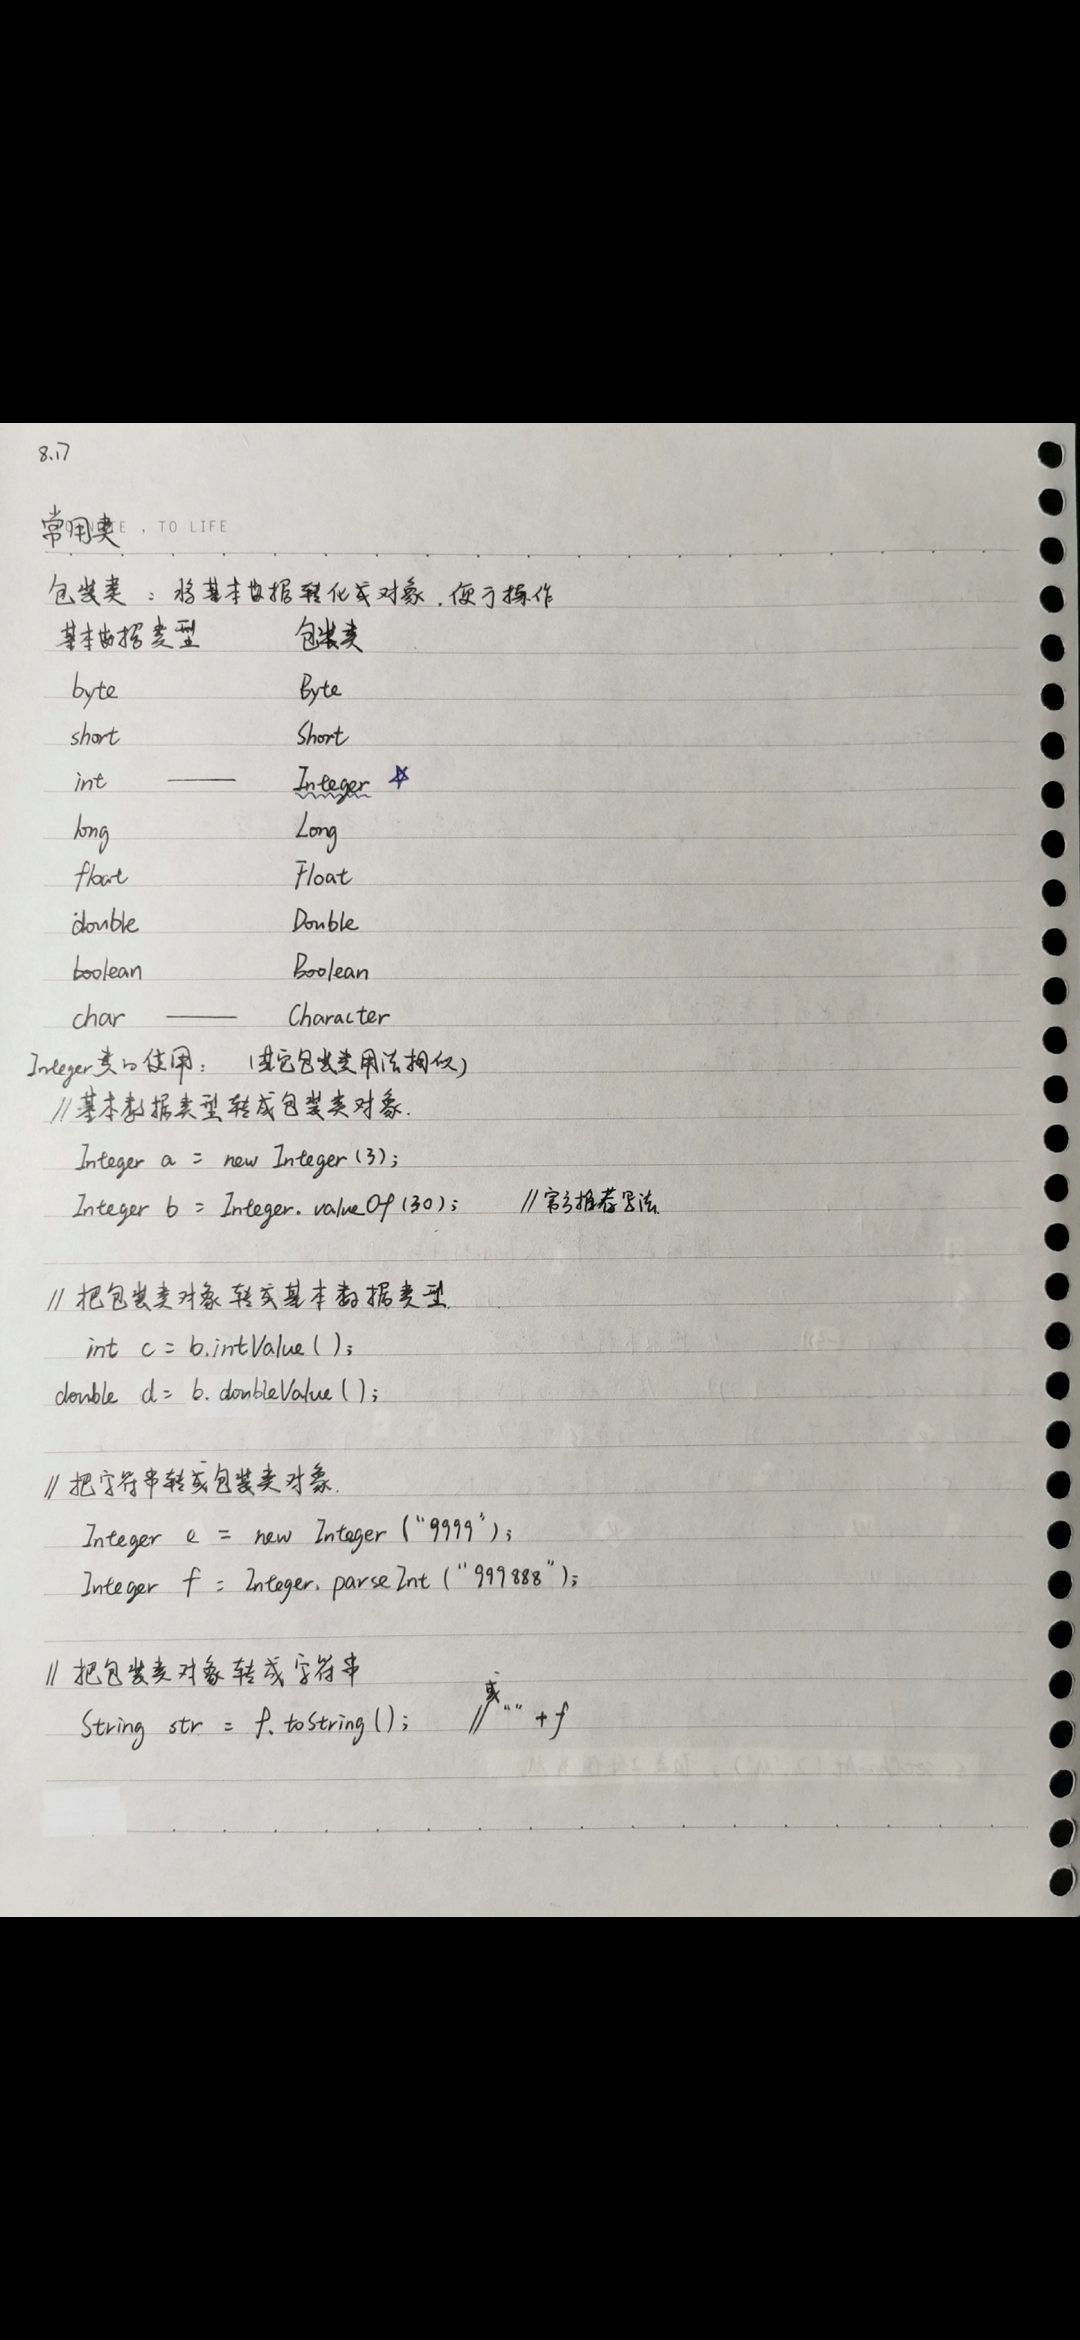 8.17
常用类 E , TO LIFE
包装类：将基本数据转化成对象，便于操作
基本数据类型 包装类
byte Byte
short Short
int —— Integer ☆
long Long
float Float
double Double
boolean Boolean
char —— Character
Integer类的使用：（其它包装类用法相似）
//基本数据类型转成包装类对象.
Integer a = new Integer(3);
Integer b = Integer.valueOf(30); //官方推荐写法
//把包装类对象转成基本数据类型
int c = b.intValue();
double d = b.doubleValue();
//把字符串转成包装类对象.
Integer e = new Integer("9999");
Integer f = Integer.parseInt("999888");
//把包装类对象转成字符串
String str = f.toString(); //或 "" + f